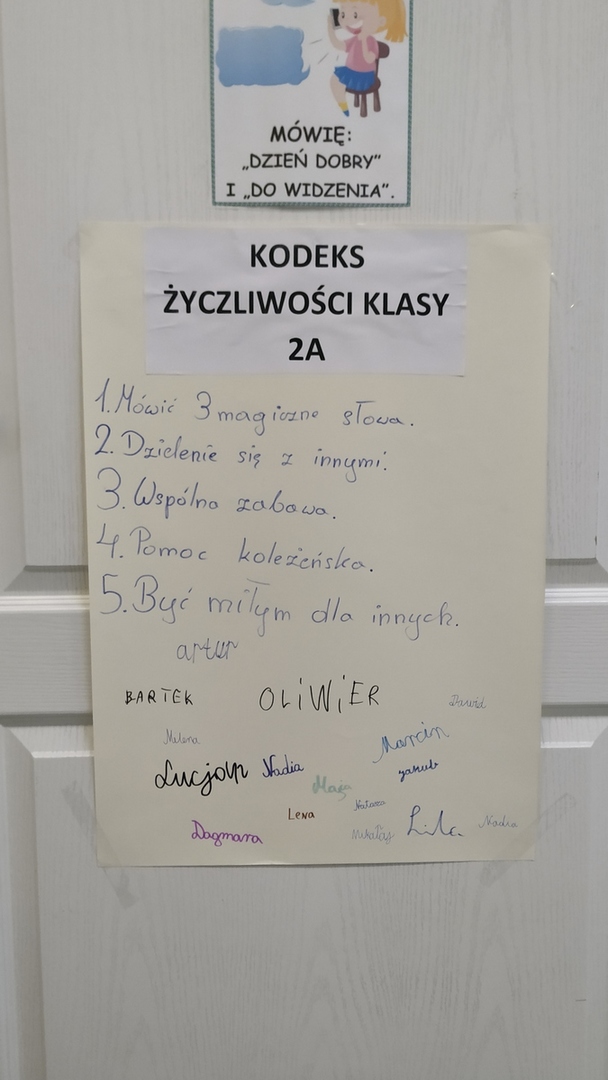 MÓWIĘ:
„DZIEŃ DOBRY”
I „DO WIDZENIA”.
KODEKS
ŻYCZLIWOŚCI KLASY
2A
1. Mówić 3 magiczne słowa.
2. Dzielenie się z innymi.
3. Wspólna zabawa.
4. Pomoc koleżeńska.
5. Być miłym dla innych.
artur
BARTEK OLiWiER Dawid
Milena Marcin
Lucjan Nadia jakub
Maja
Lena
Dagmara Mikołaj Lila Nadia